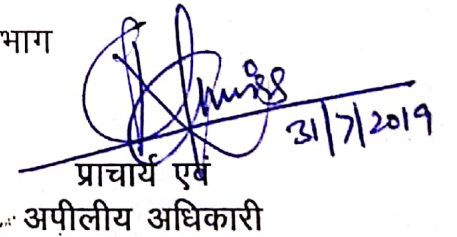 भाग
31/7/2019
प्राचार्य एवं
अपीलीय अधिकारी